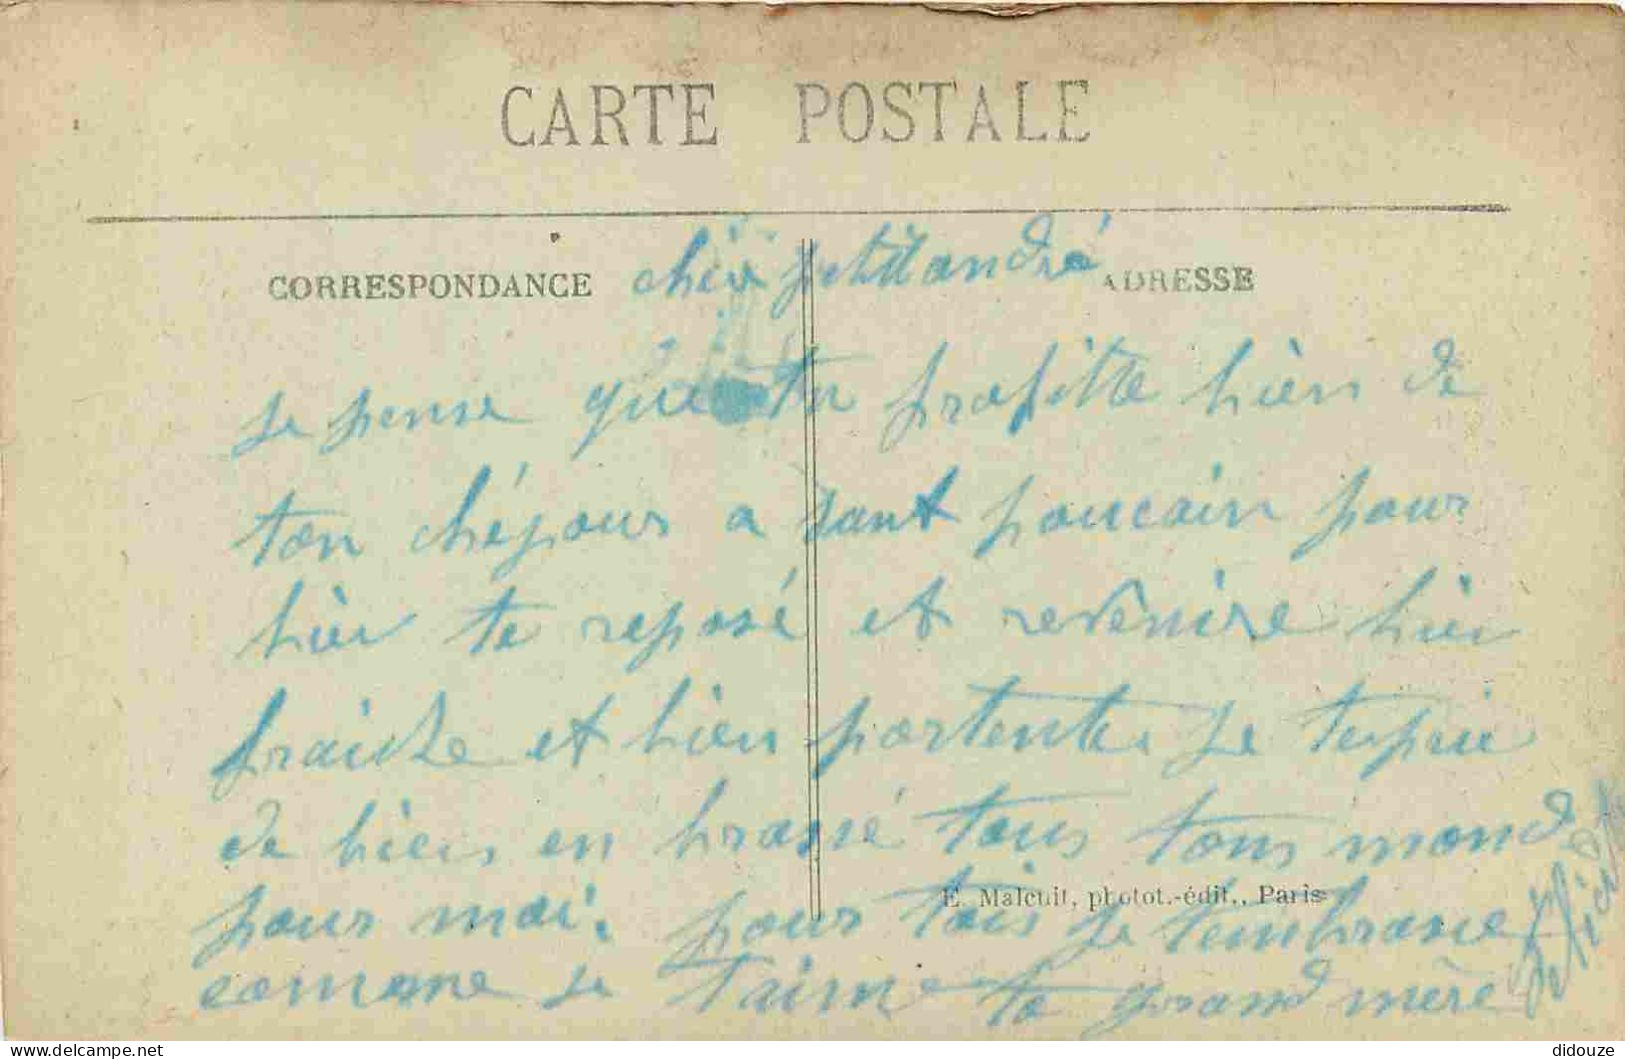 CARTE POSTALE
CORRESPONDANCE
chèr petitt andré
ADRESSE
je pense que tu profitte bien de
ton chéjour a pour
bien te reposé et revenire bien
fraiche et bien portente je te prie
de bien en brassé tous tons monde
pour moi. pour tois je tembrasse
E. Malcuit, photot.-édit., Paris
comme je t'aime ta grand mère
didouze
delcampe.net